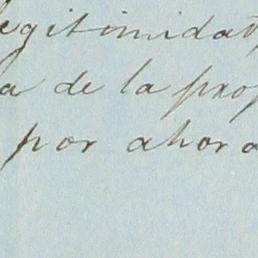 legitimidad,
a de la prop
por ahora